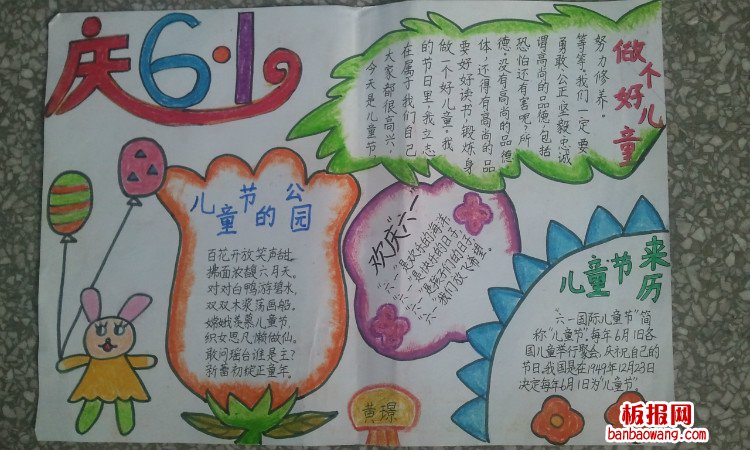 庆6·1
做个好儿童
今天是儿童节,
大家都很高兴,
在属于我们自己
的节日里,我立志
做一个好儿童。我
要好好读书,锻炼身
体,还得有高尚的品
德。没有高尚的品德
恐怕还有害呢?所
谓高尚的品德,包括
勇敢、公正、坚毅、忠诚
等等。我们一定要
努力修养。
儿童节的公园
百花开放笑声甜,
拂面浓馥六月天。
对对白鸭游碧水,
双双木桨荡画船。
嫦娥羡慕儿童节,
织女思凡懒做仙。
敢问瑶台谁是主?
新蕾初绽正童年。
欢庆“六一”
“六一”是欢乐的海洋,
“六一”是快乐的日子,
“六一”是孩子们的日子,
“六一”我们放飞希望。
儿童节来历
“六一国际儿童节”简
称“儿童节”。每年6月1日各
国儿童举行聚会,庆祝自己的
节日。我国是在1949年12月23日
决定每年6月1日为“儿童节”。
黄璟
板报网
banbaowang.com